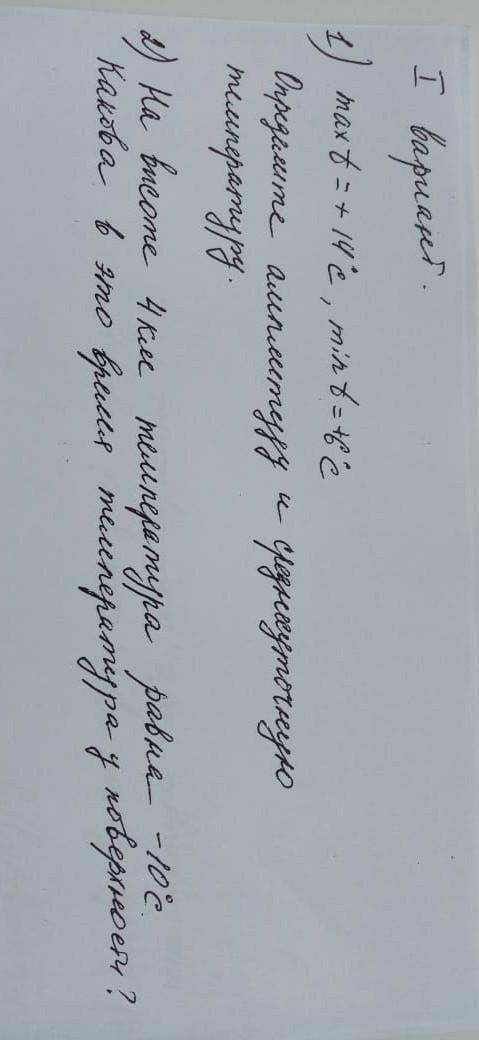 I вариант.
1) max t = + 14°C, min t = +6°C
Определите амплитуду и среднесуточную
температуру.
2) На высоте 4 км температура равна -10°C.
Какова в это время температура у поверхности?